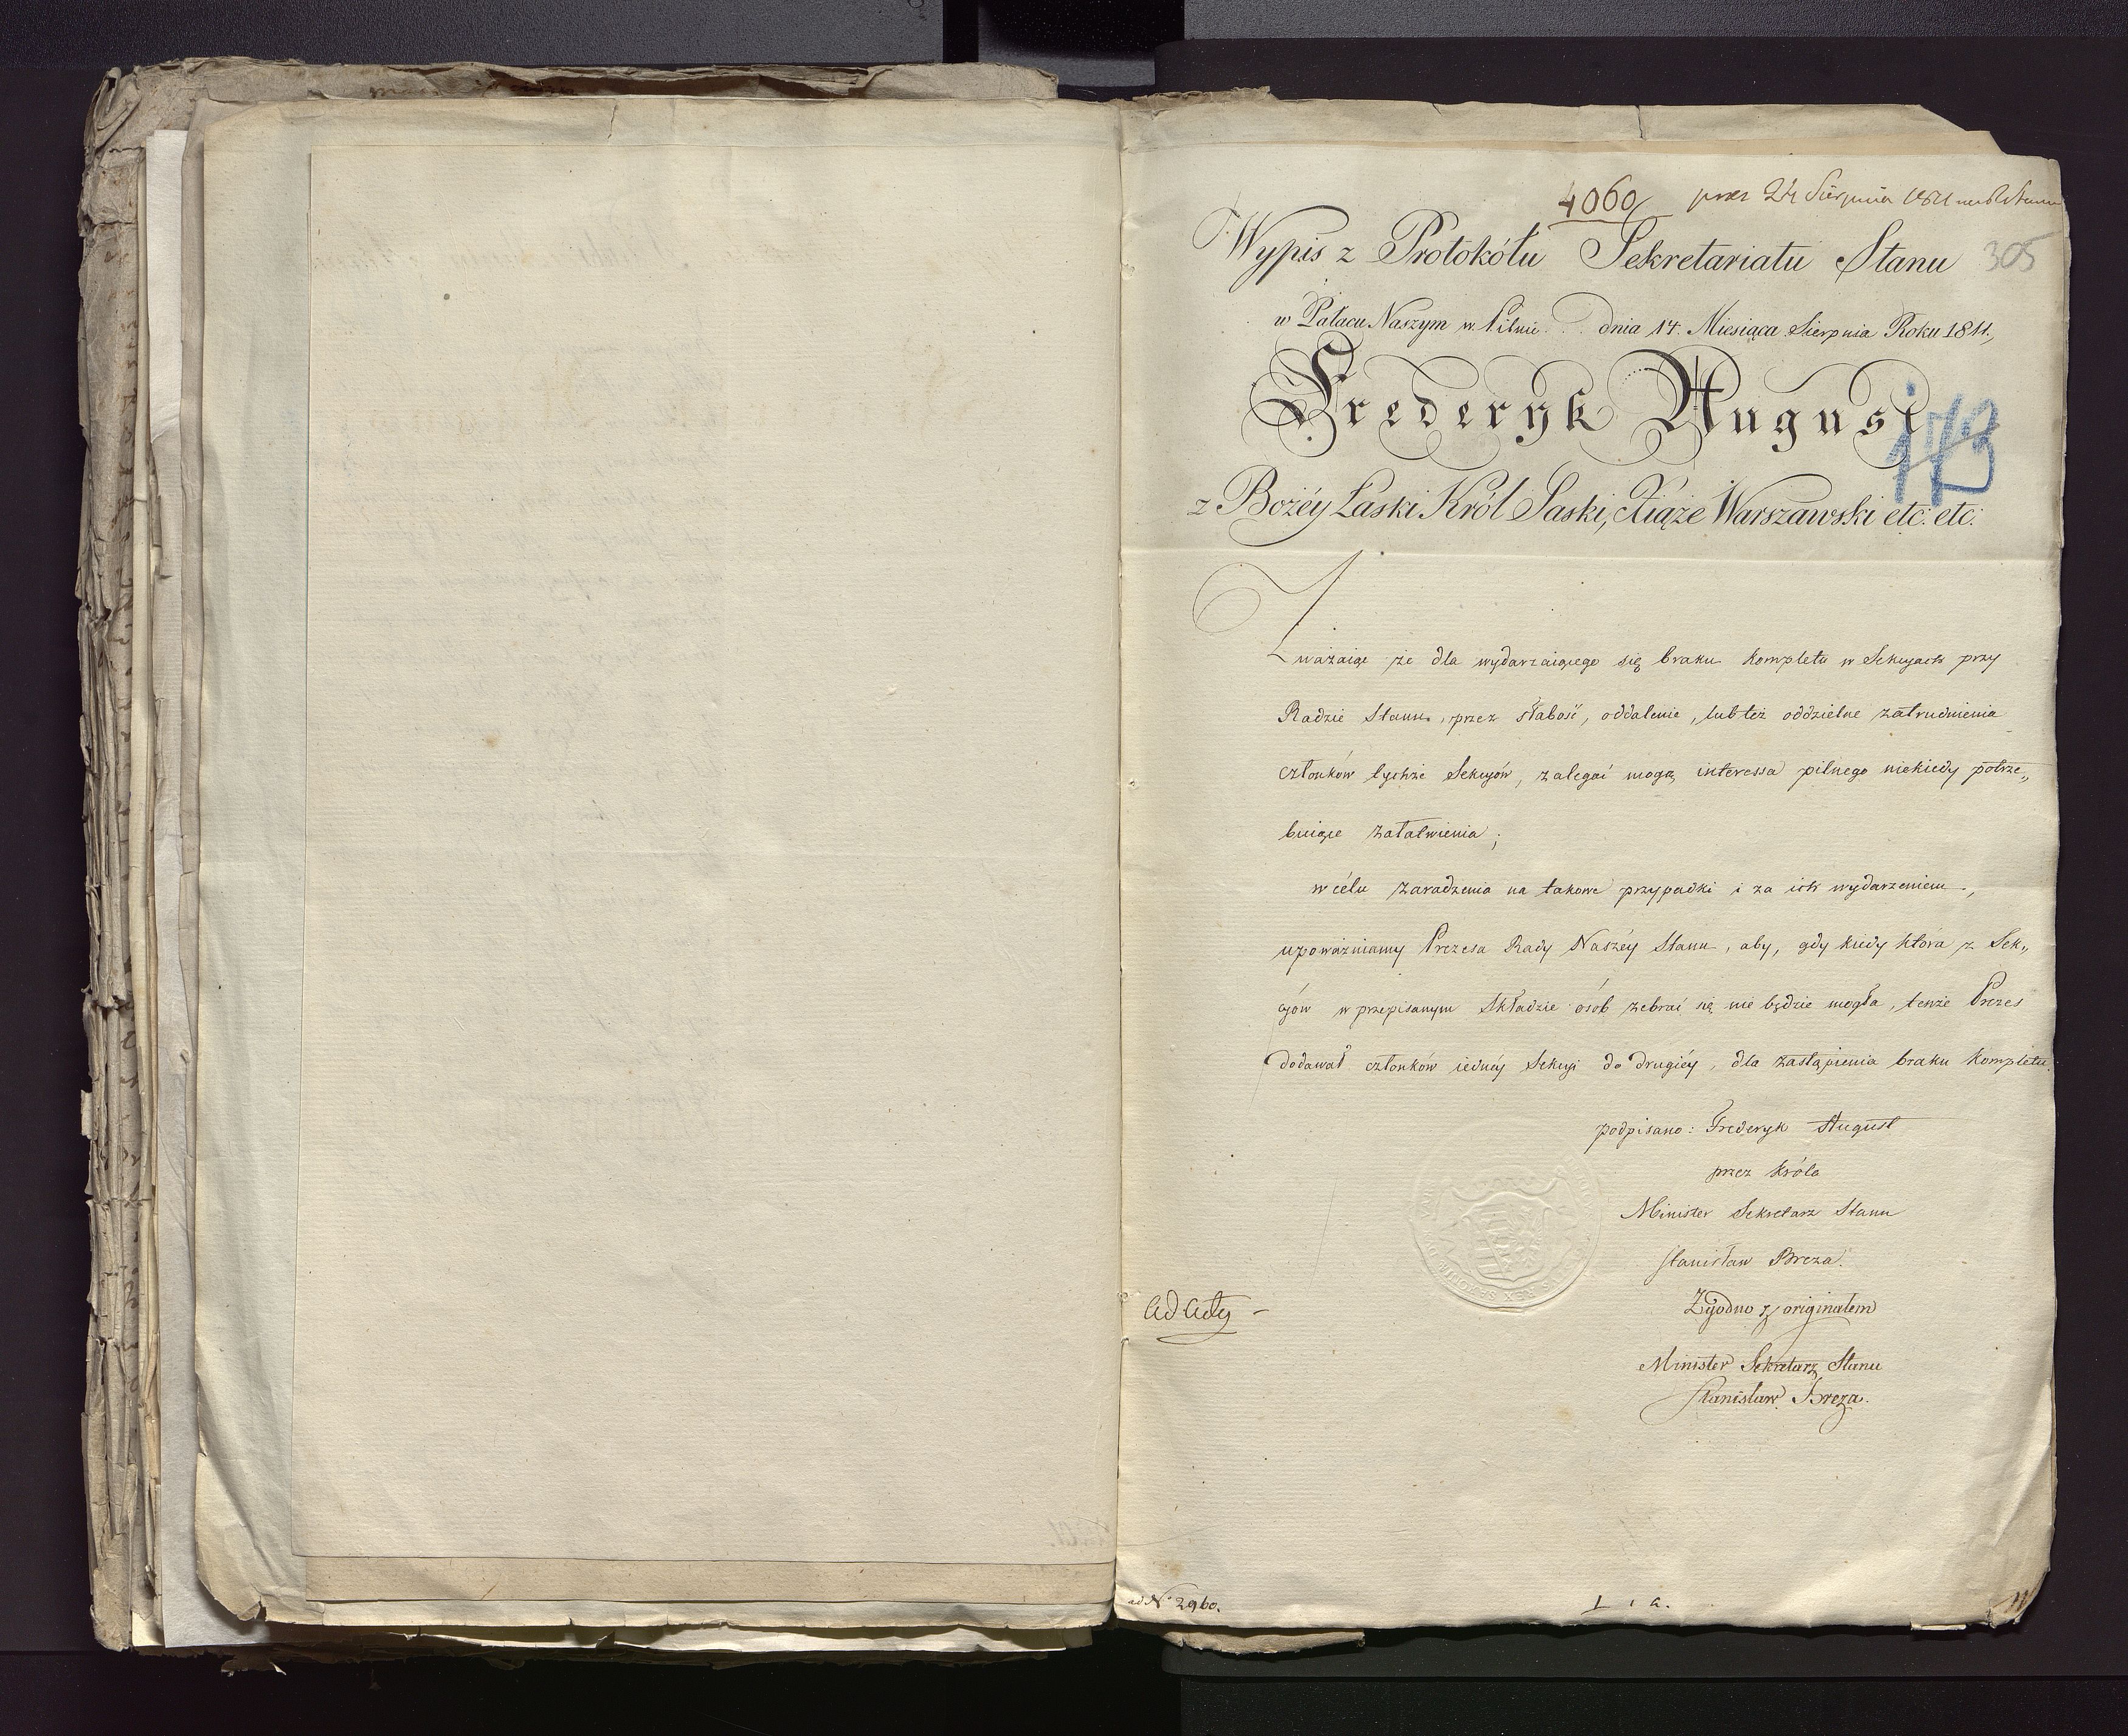 4060 prs 24 Sierpnia
Wypis z Protokółu Sekretariatu Stanu 305
w Pałacu Naszym w Pilnic. dnia 14. Miesiąca Sierpnia Roku 1811.,
Fryderyk August
z Bożéy Łaski Król Saski, Xiąże Warszawski etc: etc:
Zważaiąc że dla wydarzaiącego się braku kompletu w Sekcyach przy
Radzie Stanu, przez słabość, oddalenie, lub też oddzielne zatrudnienia
członków tychże Sekcyów, zalegać mogą interessa pilnego niekiedy potrze„
buiące załatwienia;
w célu zaradzenia na takowe przypadki i za ich wydarzeniem,
upoważniamy Prezesa Rady Naszéy Stanu, aby, gdy kiedy która z Sek„
cyów w przepisanym składzie osób zebrać się nie będzie mogła, tenże Prezes
dodawał członków iednéy Sekcyi do drugiéy, dla zastąpienia braku kompletu.
podpisano: Frederyk August
przez Króla
Minister Sekretarz Stanu
Stanisław Breza.
Zgodno z originałem
Minister Sekretarz Stanu
Stanisław Breza.
ad Acta
ad N° 2960.